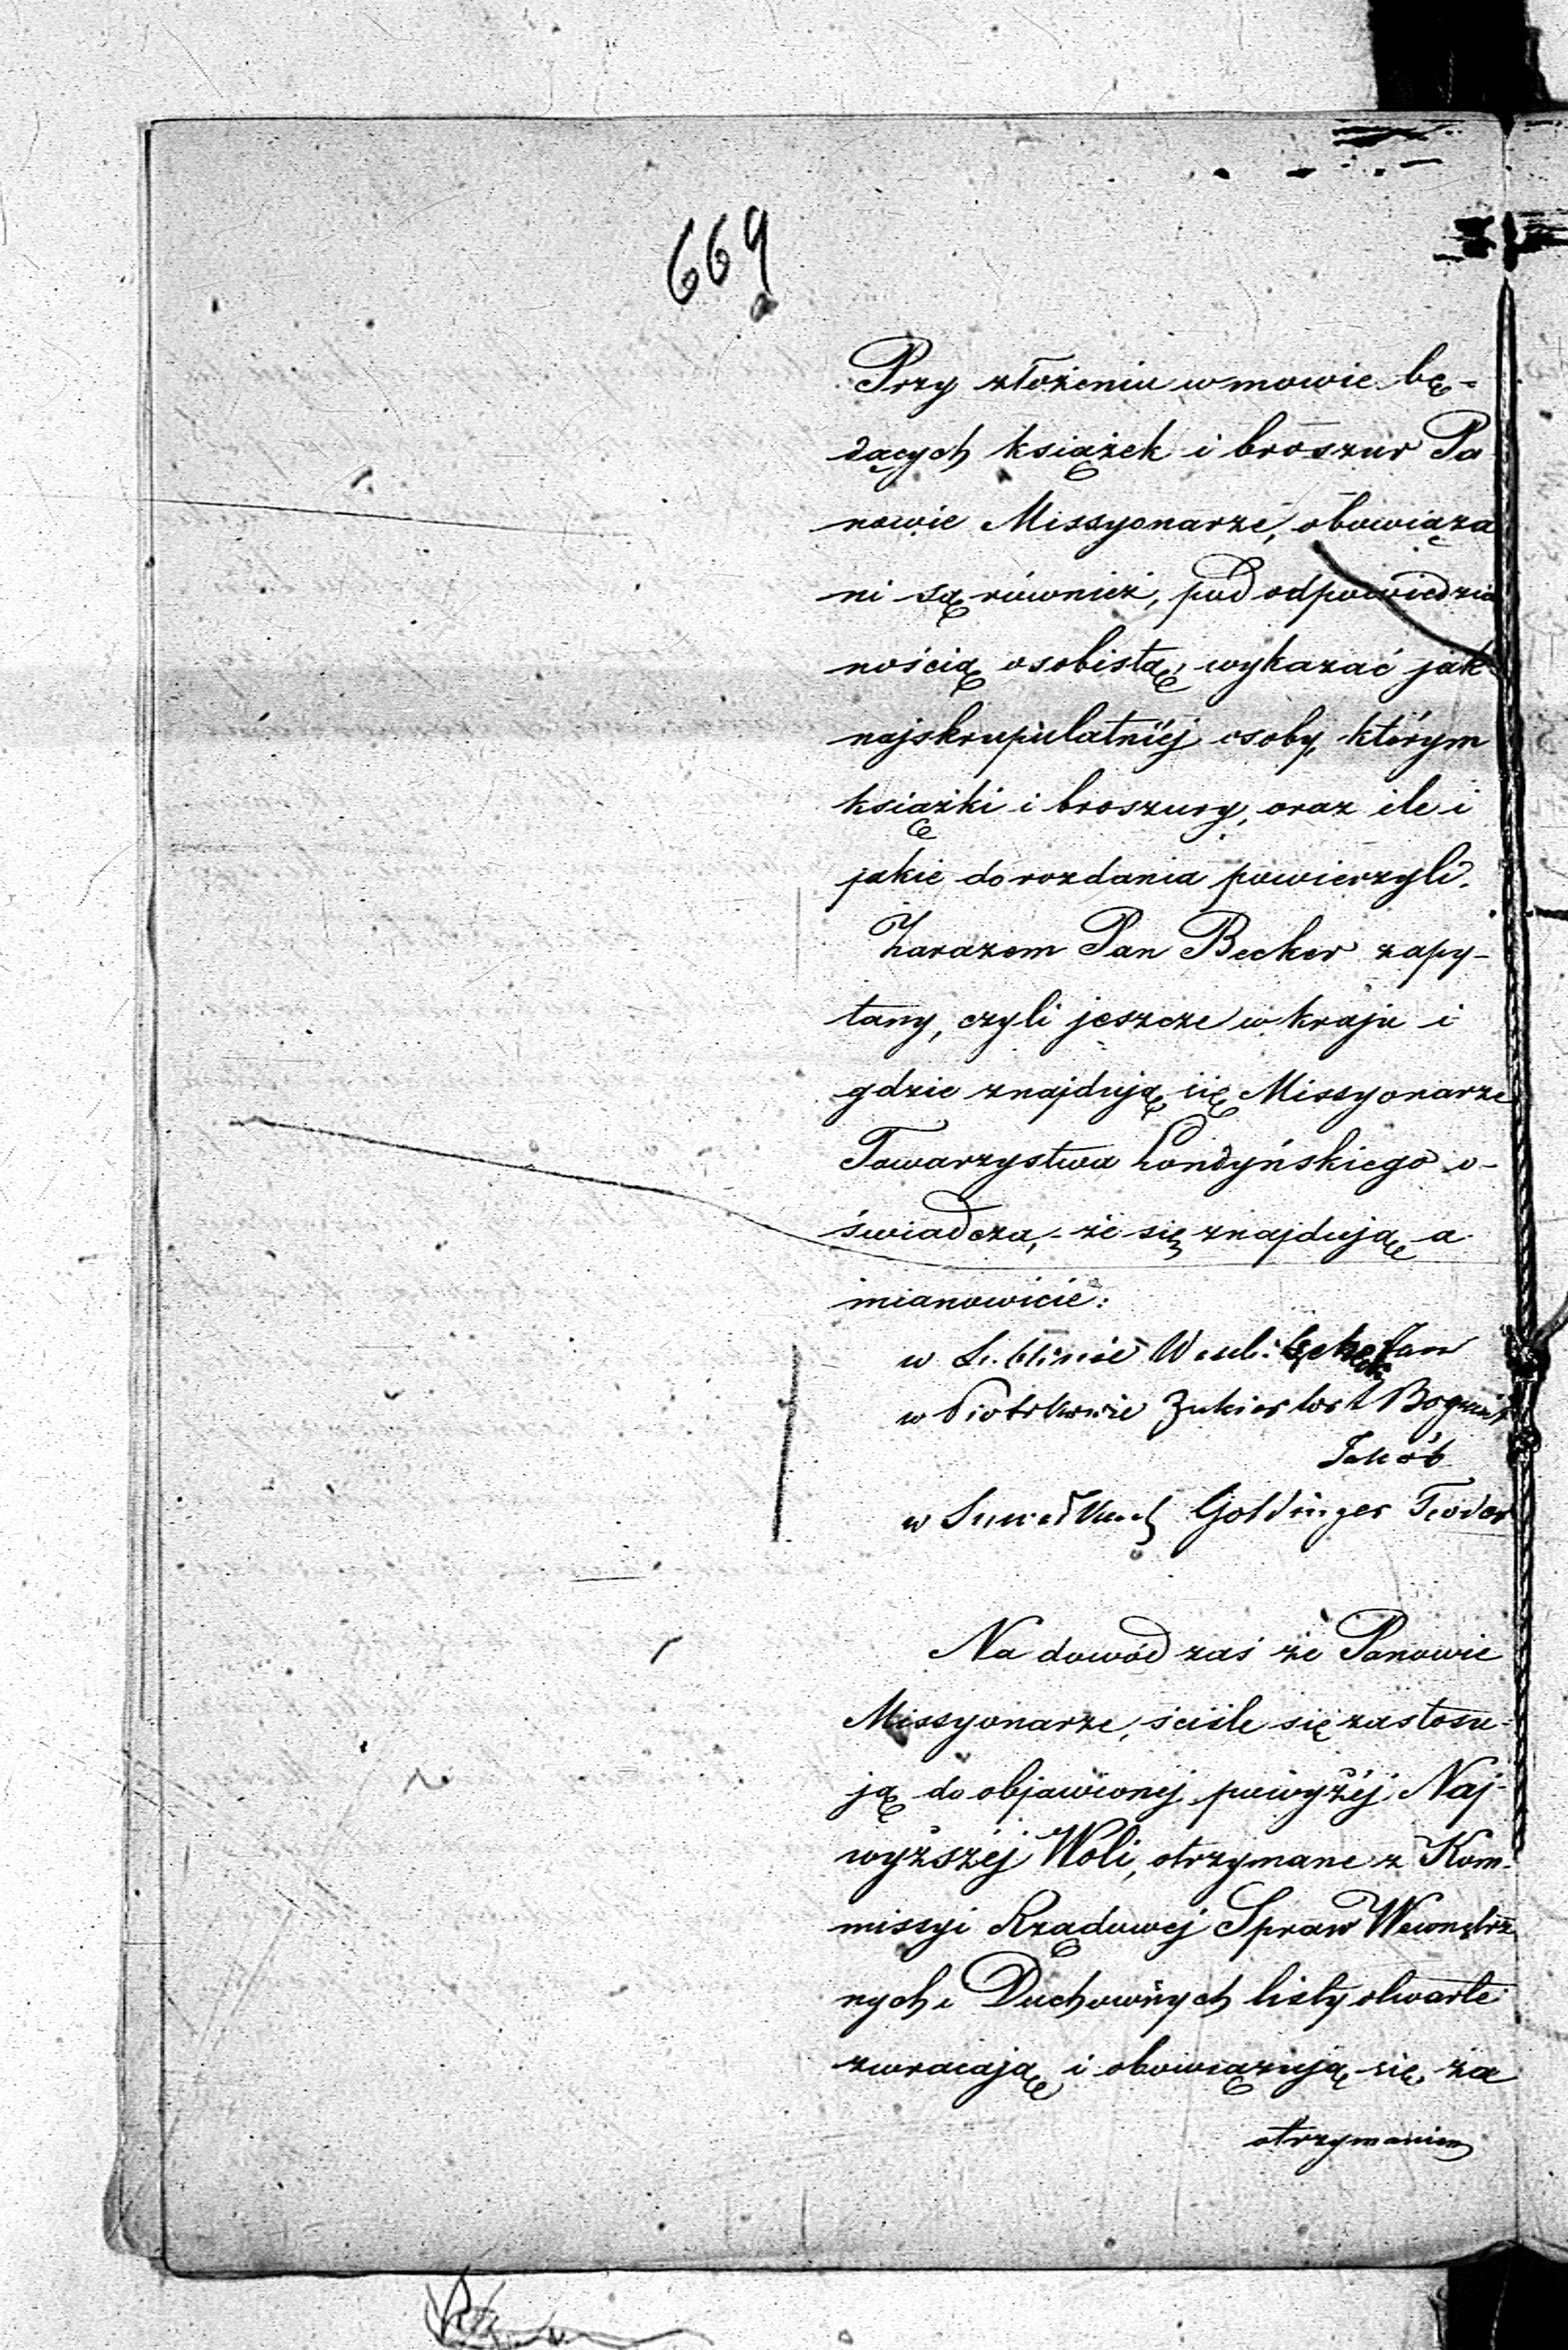 669
Przy złożeniu w mowie bę-
dących książek i broszur Pa
nowie Missyonarze, obowiąza
ni są również, pod odpowiedzia
nością osobistą, wykazać jak
najskrupulatniéj osoby, którym
książki i broszury, oraz ile i
jakie do rozdania powierzyli.
Zarazem Pan Becker zapy-
tany, czyli jeszcze w kraju i
gdzie znajdują się Missyonarze
Towarzystwa Londyńskiego o-
świadcza, że się znajdują a
mianowicie:
w Lublinie Jan
w Piotrkowie Bogumił
Jakób
w Suwałkach Goldinger Teodor
Na dowód zaś że Panowie
Missyonarze, ściśle się zastosu-
ją do objawionej powyżéj Naj-
wyższéj Woli, otrzymane z Kom-
missyi Rządowej Spraw Wewnętrz
nych i Duchownych listy otwarte
zwracają i obowiązują się, za
otrzymaniem